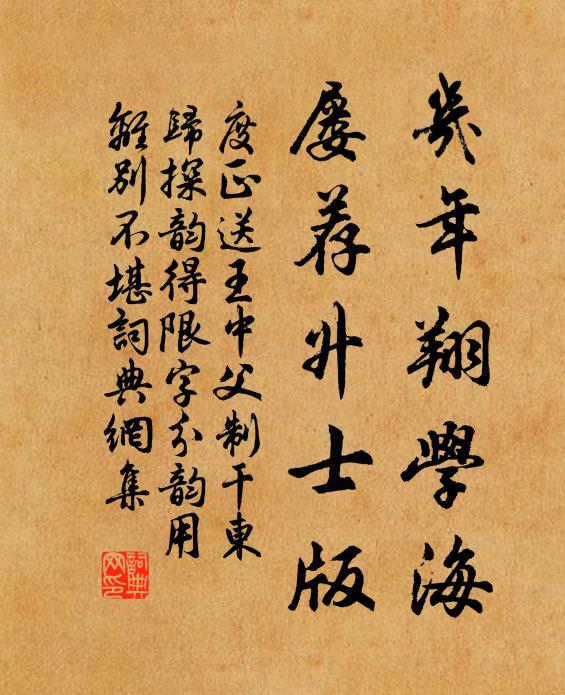 幾年翔學海
屡荐升士版
度正送王中父制干東
歸探韵得限字分韵用
離別不堪詞典網集
詞典
网印